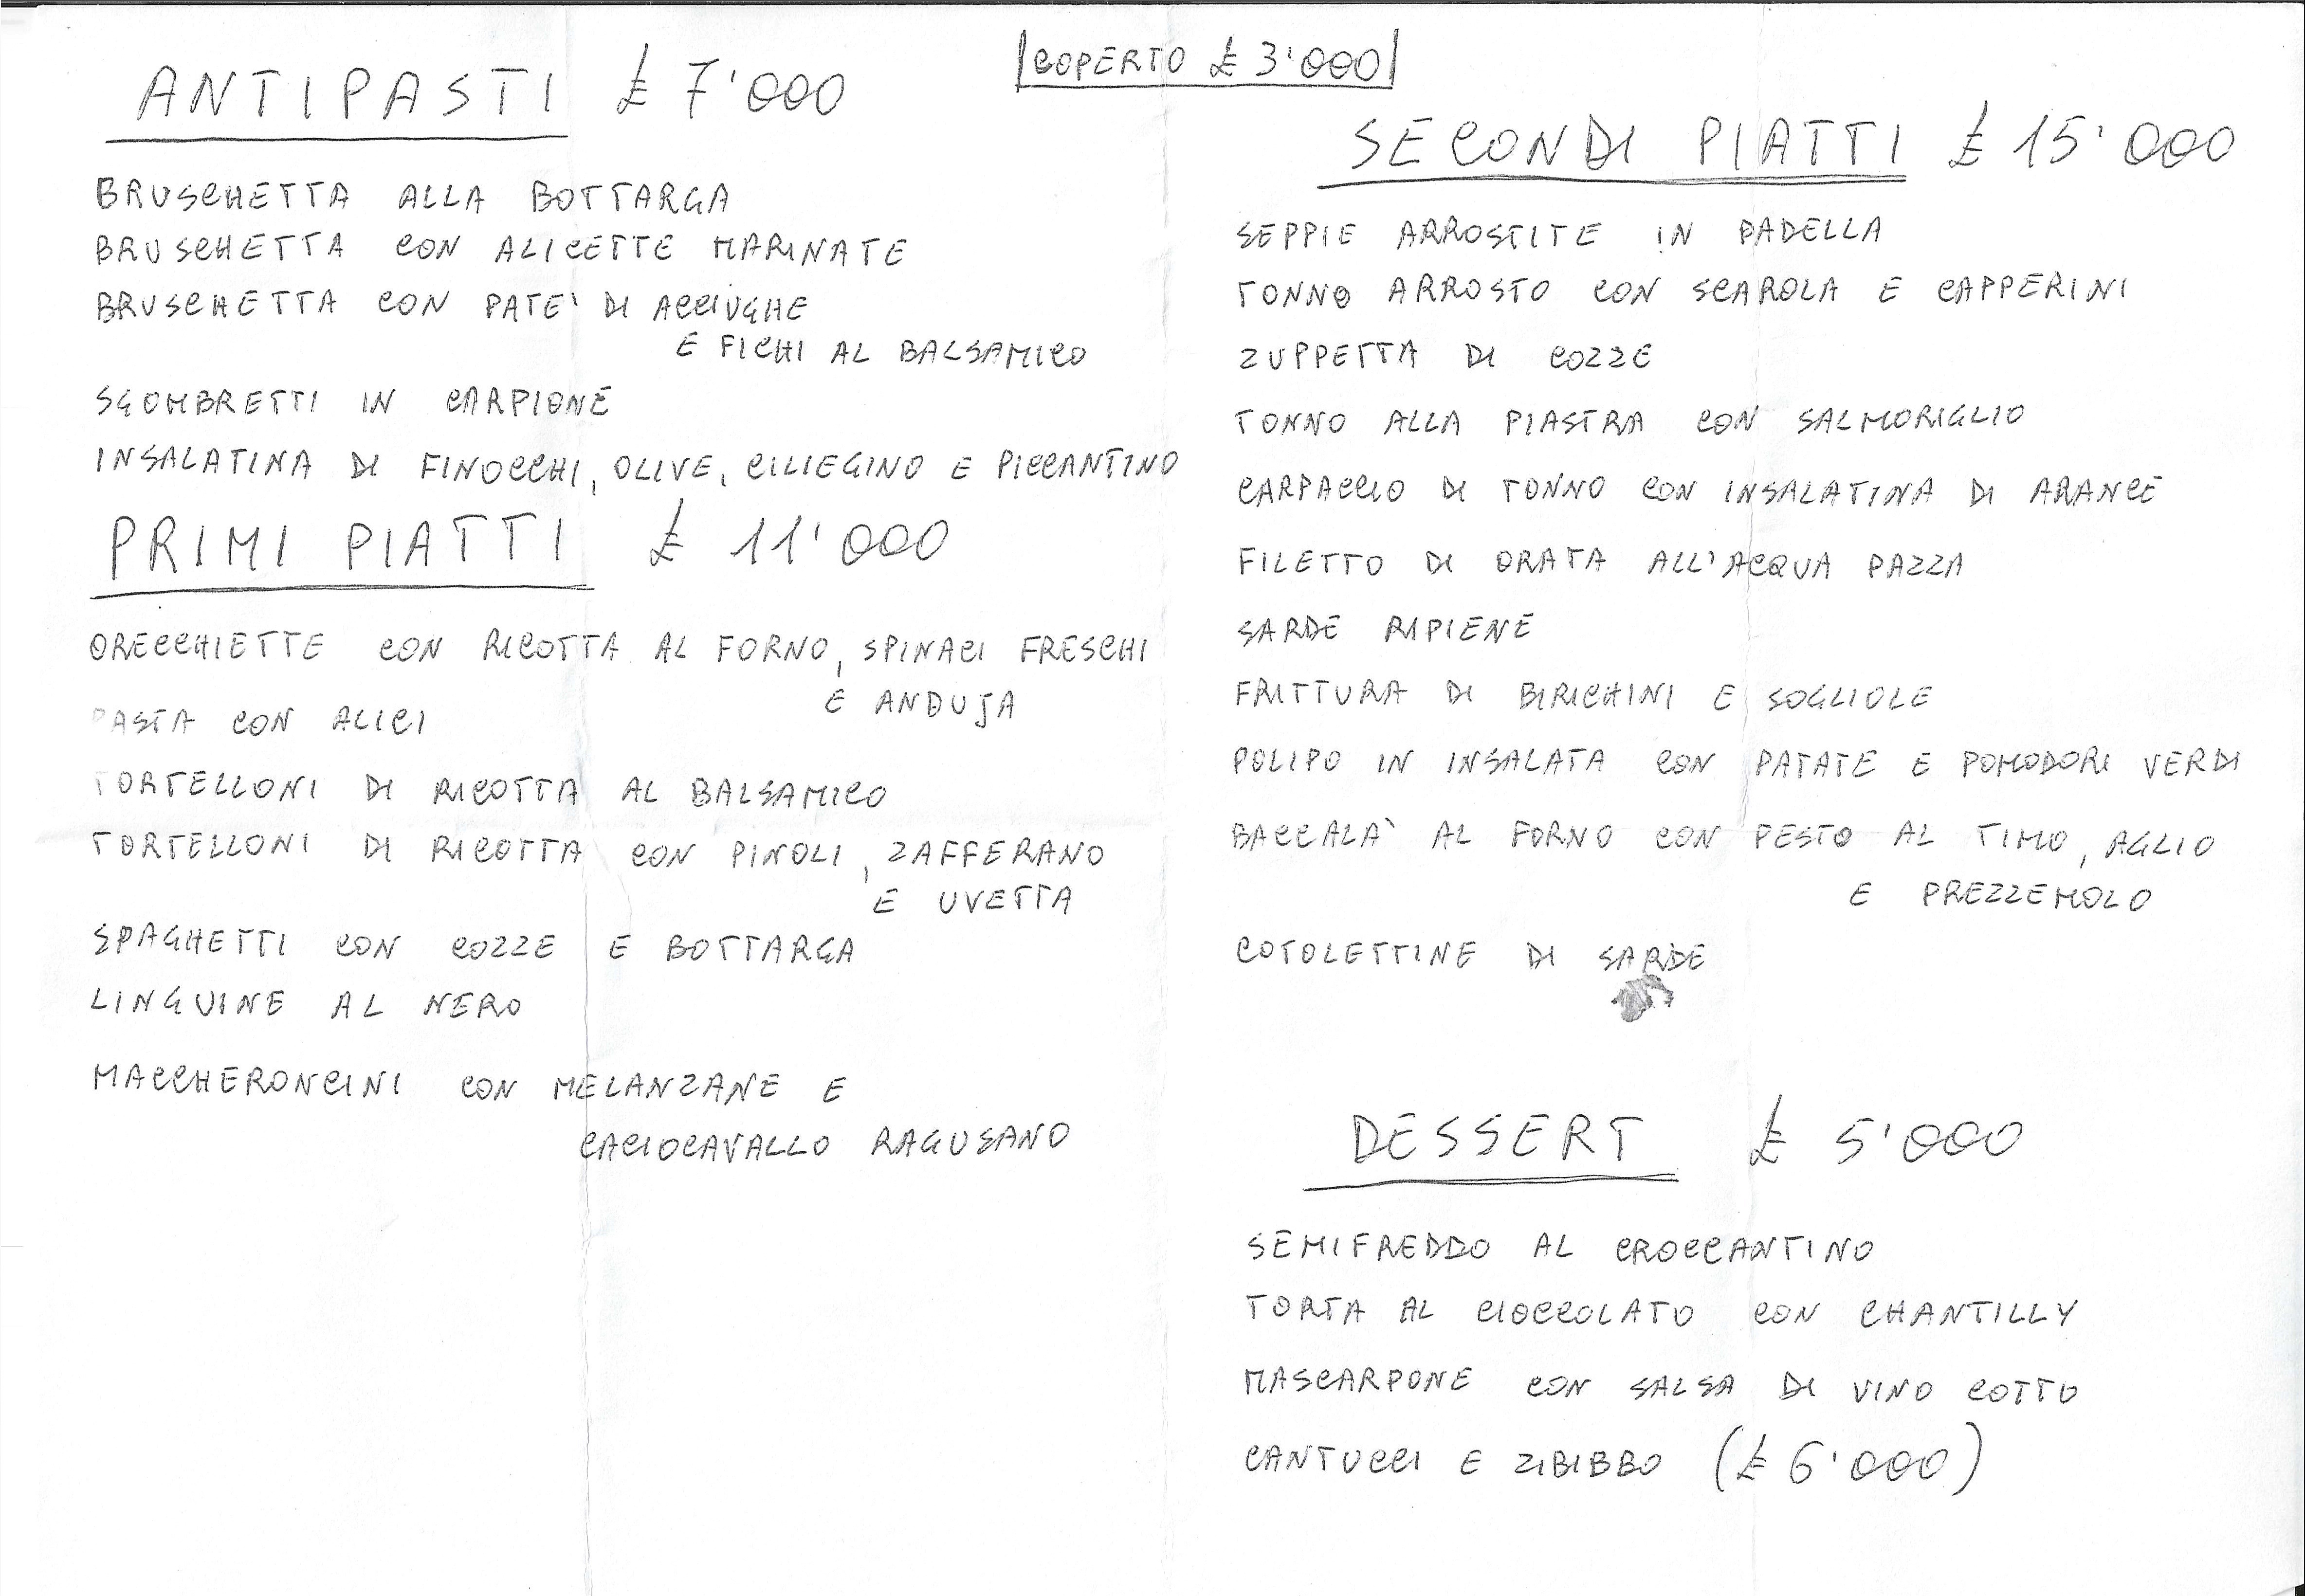 COPERTO £ 3'000
ANTIPASTI £ 7'000
BRUSCHETTA ALLA BOTTARGA
BRUSCHETTA CON ALICETTE MARINATE
BRUSCHETTA CON PATE' DI ACCIUGHE
E FICHI AL BALSAMICO
SGOMBRETTI IN CARPIONE
INSALATINA DI FINOCCHI, OLIVE, CILIEGINO E PICCANTINO
PRIMI PIATTI £ 11'000
ORECCHIETTE CON RICOTTA AL FORNO, SPINACI FRESCHI
E ANDUJA
PASTA CON ALICI
TORTELLONI DI RICOTTA AL BALSAMICO
TORTELLONI DI RICOTTA CON PINOLI, ZAFFERANO
E UVETTA
SPAGHETTI CON COZZE E BOTTARGA
LINGUINE AL NERO
MACCHERONCINI CON MELANZANE E
CACIOCAVALLO RAGUSANO
SECONDI PIATTI £ 15'000
SEPPIE ARROSTITE IN PADELLA
TONNO ARROSTO CON SCAROLA E CAPPERINI
ZUPPETTA DI COZZE
TONNO ALLA PIASTRA CON SALMORIGLIO
CARPACCIO DI TONNO CON INSALATINA DI ARANCE
FILETTO DI ORATA ALL'ACQUA PAZZA
SARDE RIPIENE
FRITTURA DI BIRICHINI E SOGLIOLE
POLIPO IN INSALATA CON PATATE E POMODORI VERDI
BACCALA' AL FORNO CON PESTO AL TIMO, AGLIO
E PREZZEMOLO
COTOLETTINE DI SARDE
DESSERT £ 5'000
SEMIFREDDO AL CROCCANTINO
TORTA AL CIOCCOLATO CON CHANTILLY
MASCARPONE CON SALSA DI VINO COTTO
CANTUCCI E ZIBIBBO (£ 6'000)